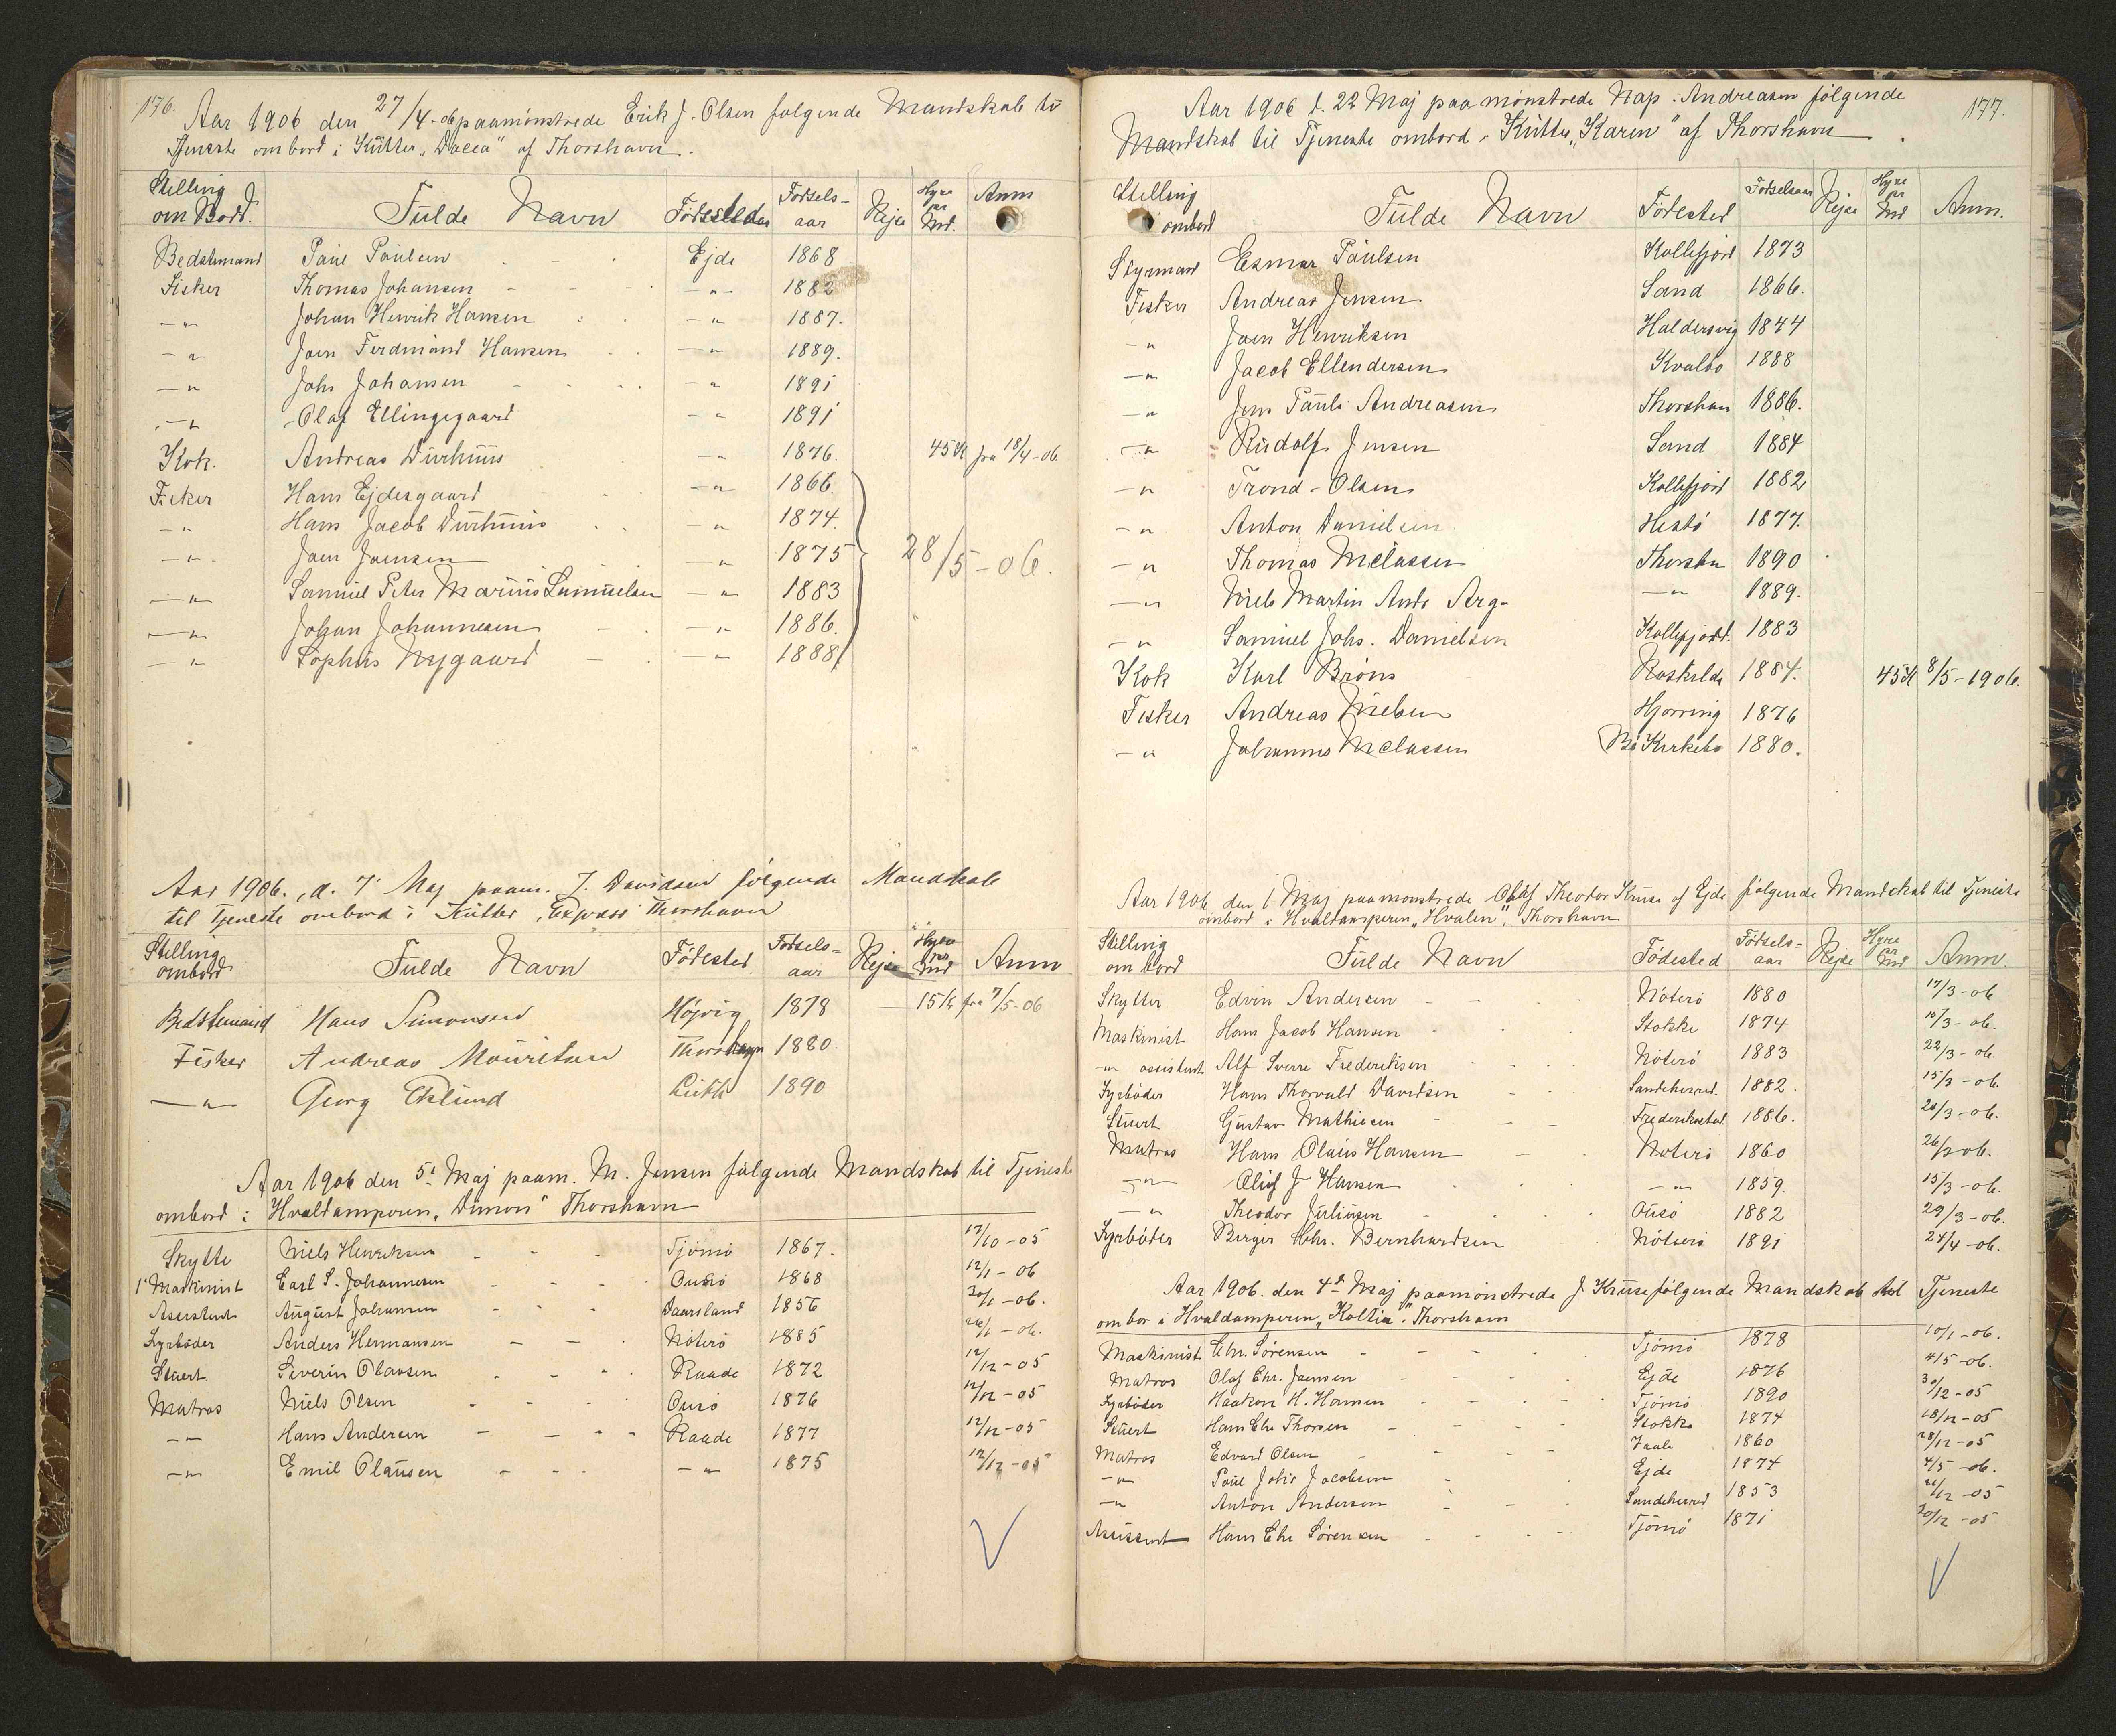 176.
Aar 1906 den 27/4-06 paamönstrede Erik J. Olsen følgende Mandskab til
Tjeneste ombord i Kutter „Dacca" af Thorshavn.
Stilling om Bord. Fulde Navn Födestedet Födsels-aar Rejse Hyre pr Md. Anm
Bedstemand Poul Poulsen Ejde 1868
Fisker Thomas Johansen -"- 1882
-"- Johan Henrik Hansen -"- 1887.
-"- Joen Ferdinand Hansen -"- 1889.
-"- Johs Johansen -"- 1891
-"- Olaf Ellingsgaard -"- 1891
Kok. Andreas Durhuus -"- 1876. 45 Kr fra 18/4-06.
Fisker Hans Ejdesgaard -"- 1866.
-"- Hans Jacob Durhuus -"- 1874.
-"- Joen Joensen -"- 1875 28/5-06.
-"- Samuel Peter Marius Samuelsen -"- 1883
-"- Johan Johannesen -"- 1886.
-"- Sophus Nygaard -"- 1888
Aar 1906., d. 7' Maj paam. J. Davidsen følgende Mandskab
til Tjeneste ombord i Kutter „Express" Thorshavn
Stilling ombord Fulde Navn Födested Födsels-aar Rejse Hyre pr Md Anm
Bedstemand Hans Simonsen Højvig 1878 15 Kr fra 7/5-06
Fisker Andreas Mouritsen Thorshavn 1880.
-"- Georg Eklund Leith 1890
Aar 1906 den 5' Maj paam. M. Jensen følgende Mandskab til Tjeneste
ombord i Hvaldamperen „Dimon" Thorshavn
Skytte Niels Henriksen Tjömö 1867. 17/10-05
1' Maskinist Carl S. Johannesen Ousö 1868 12/1-06
Assistent August Johansen Vaarsland 1856 20/1-06.
Fyrböder Anders Hermansen Nöterö 1885 26/1-06.
Stuert Severin Olavsen Raade 1872 12/12-05
Matros Niels Olsen Ousö 1876 12/12-05
-"- Hans Andersen Raade 1877 12/12-05
-"- Emil Olausen -"- 1875 12/12-05
177.
Aar 1906 d. 22 Maj paamönstrede Nap. Andreasen følgende
Mandskab til Tjeneste ombord i Kutter „Karen" af Thorshavn.
Stilling ombord Fulde Navn Födested Födselsaar Rejse Hyre pr Md Anm.
Styrmand Esmar Poulsen Kollefjord 1873
Fisker Andreas Jensen Sand 1866.
-"- Joen Henriksen Haldersvig 1844
-"- Jacob Ellendersen Kvalbo 1888
-"- Jens Pauli Andreasen Thorshavn 1886.
-"- Rudolf Jensen Sand 1884
-"- Trond Olsen Kollefjord 1882
-"- Anton Danielsen Hestö 1877.
-"- Thomas Niclassen Thorshn 1890
-"- Niels Martin Andr Arge -"- 1889.
-"- Samuel Johs. Danielsen Kollefjord. 1883
Kok Karl Bröns Roskilde 1884. 45 Kr 8/5-1906.
Fisker Andreas Nielsen Hjorring 1876
-"- Johannes Niclassen Kirkebö 1880.
Aar 1906 den 1 Maj paamonstrede Oluf Theodor Kruse af Ejde følgende Mandskab til Tjeneste
ombord i Hvaldamperen „Hvalen", Thorshavn
Stilling om bord Fulde Navn Födested Födsels-aar Rejse Hyre pr Md Anm.
Skytter Edvin Andersen Nöterö 1880 17/3-06
Maskinist Hans Jacob Hansen Stokke 1874 15/3-06.
-"- assistent Alf Sverre Frederiksen Nöterö 1883 22/3-06.
Fyrböder Hans Thorvald Davidsen Sandeherred. 1882. 15/3-06.
Stuert Gustav Mathiesen Frederikstad 1886. 20/3-06.
Matros Hans Olaus Hansen Nöterö 1860 26/3 06.
-"- Oluf J Hansen -"- 1859. 15/3-06.
-"- Theodor Juliusen Ousö 1882 29/3-06.
Fyrböder Birger Chr. Bernhardsen Nöterö 1891 24/4-06.
Aar 1906. den 4de Maj paamönstrede J Kruse følgende Mandskab til Tjeneste
ombor i Hvaldamperen „Koltur". Thorshavn
Maskinist Chr. Sörensen Tjömö 1878 10/1-06.
Matros Olaf Chr. Joensen Ejde 1876 4/5-06.
Fyrböder Haakon H. Hansen Tjömö 1890 30/12-05
Stuert Hans Chr Thorsen Stokke 1874 18/12-05
Matros Edvard Olsen Vaale 1860 28/12-05
-"- Poul Johs Jacobsen Ejde 1874 4/5-06.
-"- Anton Andersen Sandeherred 1853 21/12-05
Assistent Hans Chr Sörensen Tjömö 1871 20/12-05